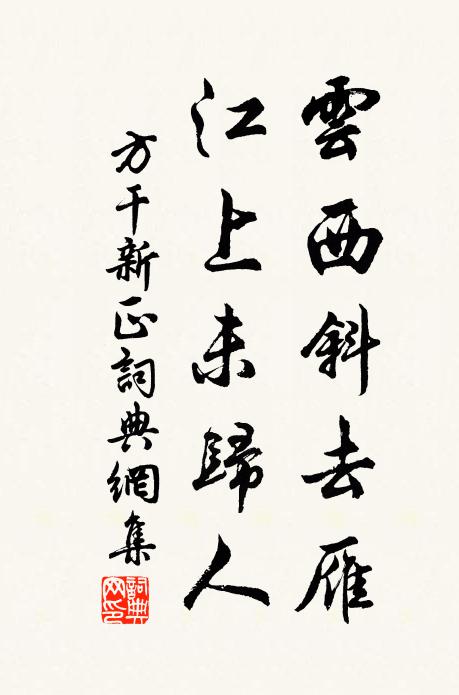 雲西斜去雁
江上未歸人
方干新正詞典網集
詞典
网印